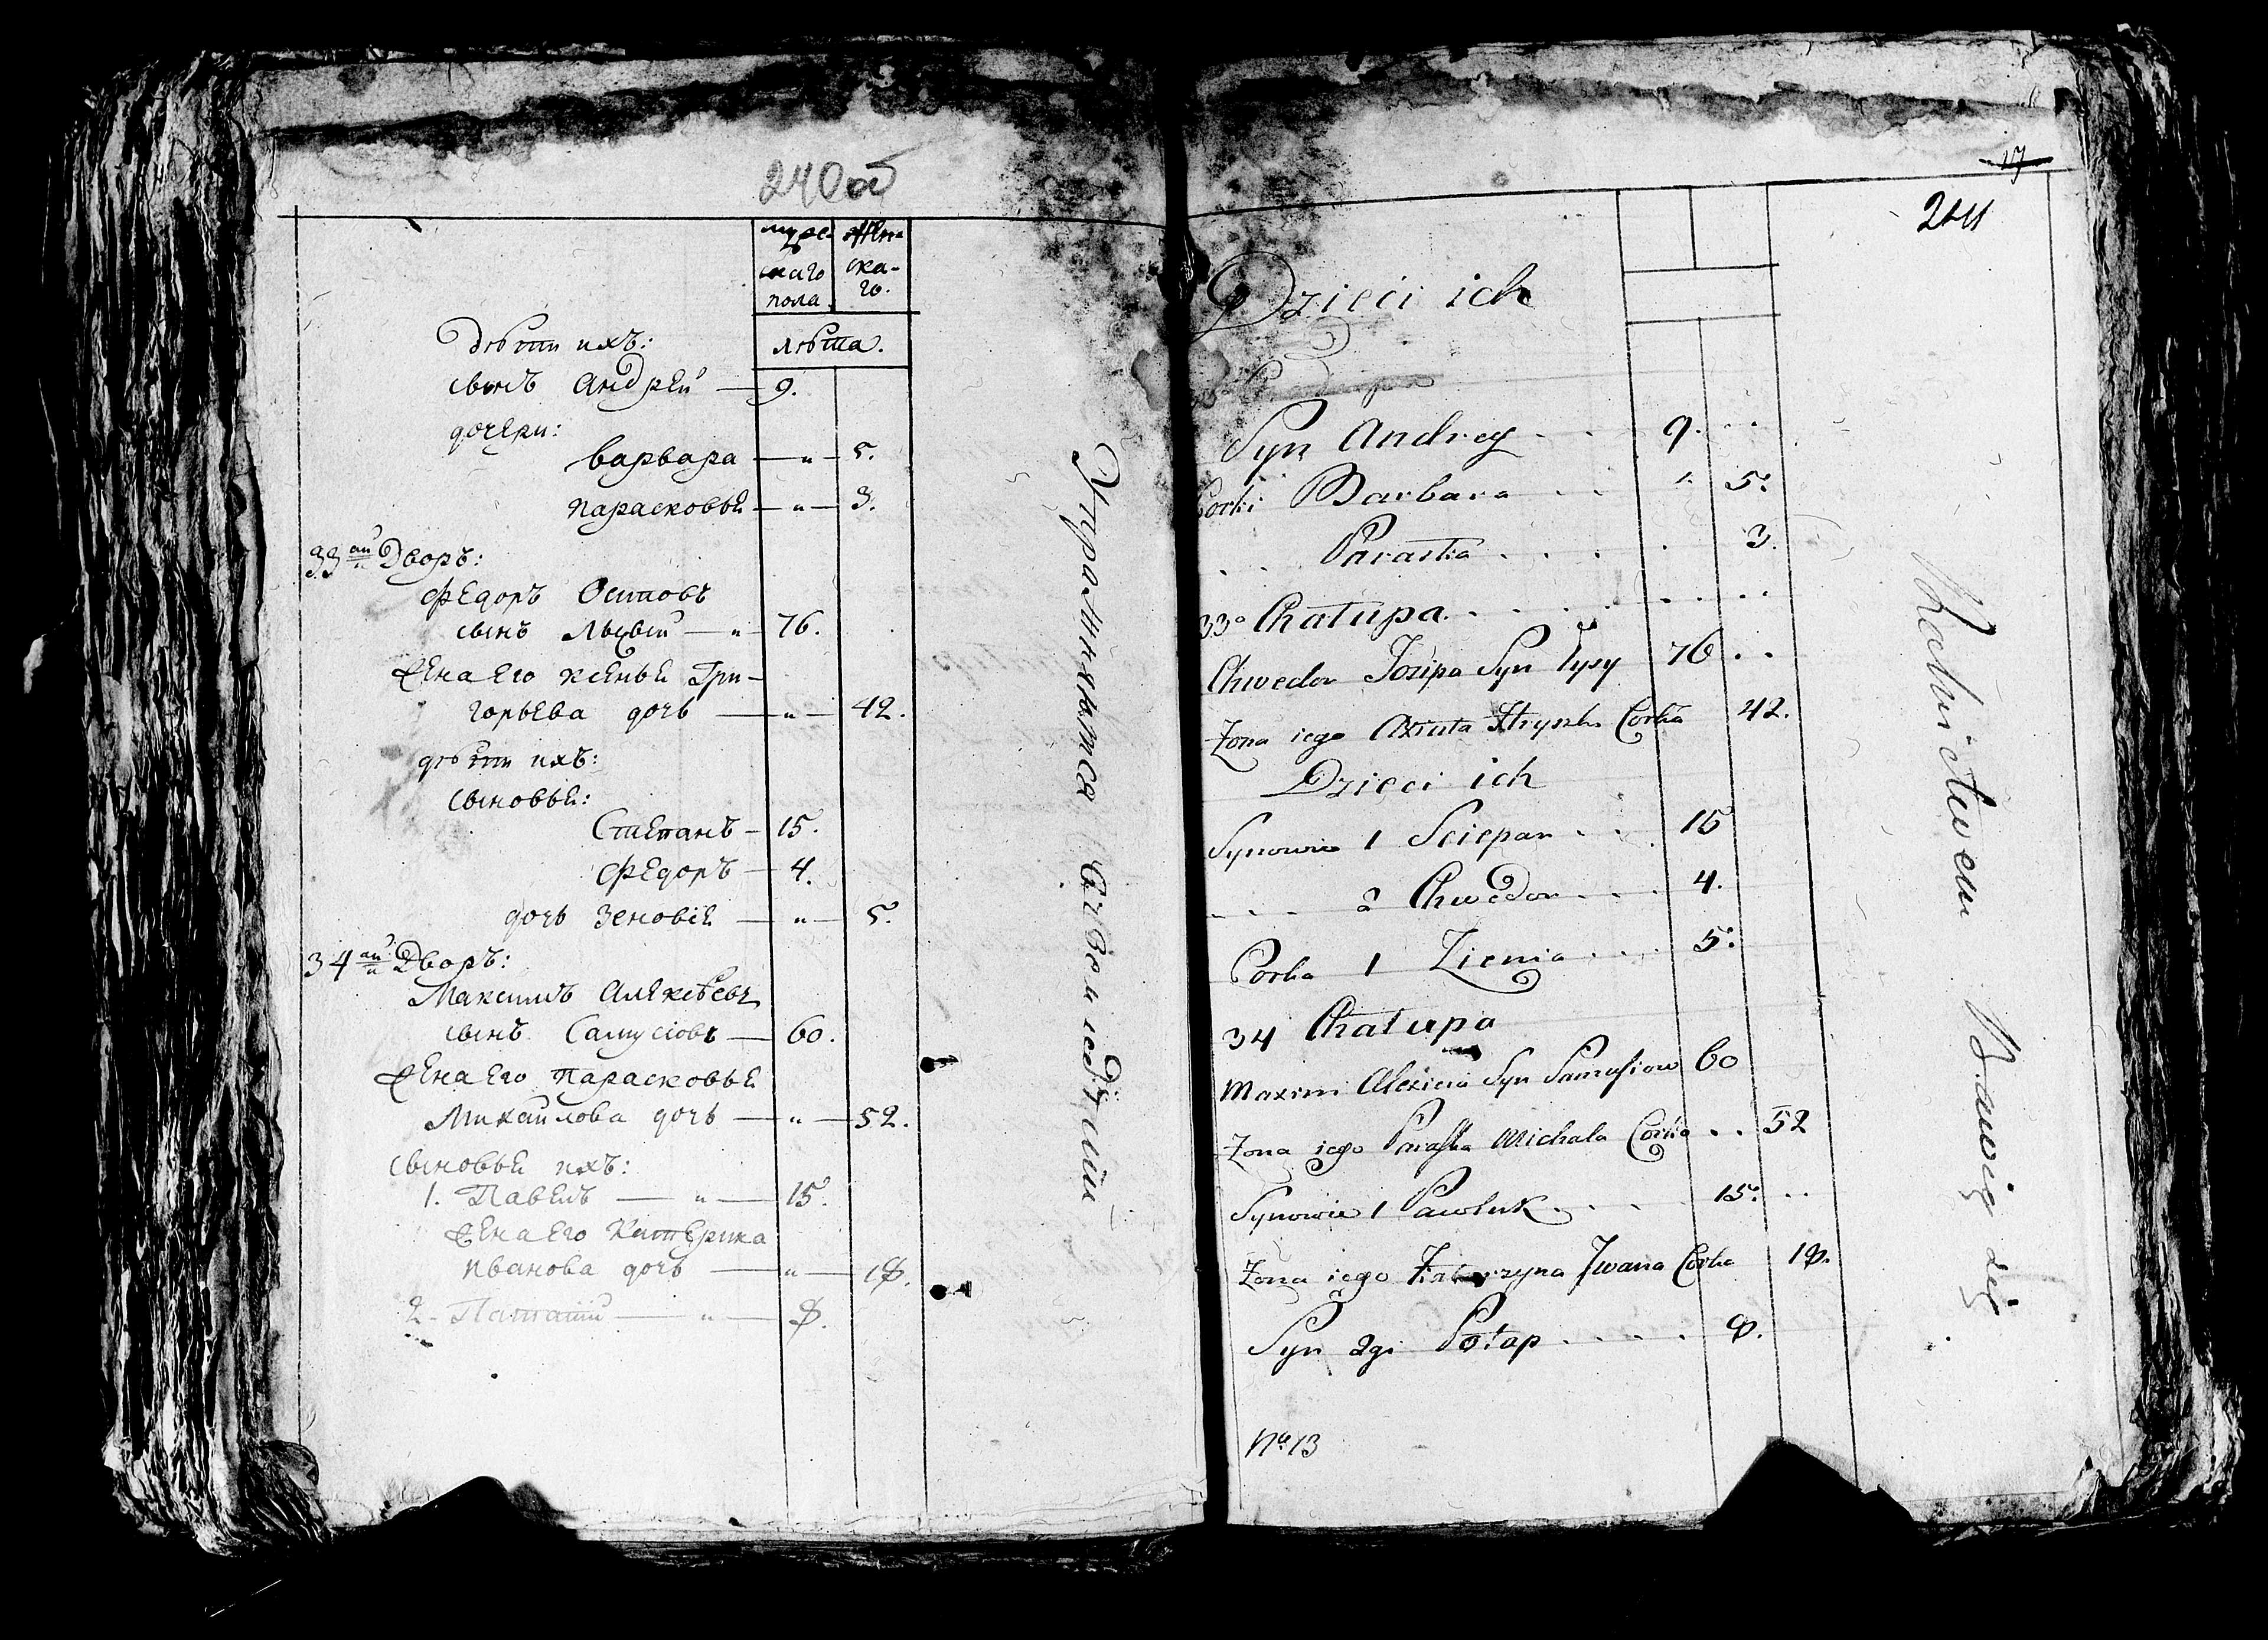 240 об
мужe- женс-
скаго ска-
пола го.
лѣта.
дѣти ихъ:
сынъ Андрей — 9.
дочери:
Варвара — " — 5.
Парасковья — " — 3.
33ай Дворъ:
Федоръ Осиповъ
сынъ Лысый — " 76.
жена его Ксенья Гри-
горьева дочь — " — 42.
дѣти ихъ:
сыновья:
Степанъ — 15.
Федоръ — 4.
дочь Зеновія — " — 5.
34ай Дворъ:
Максимъ Алексѣевъ
сынъ Самусіовъ — 60.
жена его Парасковья
Михайлова дочь — " — 52.
сыновья ихъ:
1. Павелъ — " — 15.
жена его Катерина
Иванова дочь — " — 18.
2. Патапій — " — 8.
Упражняются хлебопашествомъ
17
241
Dzieci ich
Syn Andrey . . 9. . .
Corki Barbara . . 5.
. . Paraska . . . . . 3.
33o Chałupa . . . . . . . .
Chwedor Jozipa Syn Łysy 76 . .
Zona iego Axinia Hryszki Corka 42.
Dzieci ich
Synowie 1 Sciepan . . . 15
. . . 2 Chwedor . . . 4.
Corka 1 Zienia . . . 5.
34 Chałupa
Maxim Alexieia Syn Samusiow 60
Zona iego Paraska Michala Corka . . 52
Synowie 1 Pawluk . . . 15. . .
Zona iego Katarzyna Jwana Corka 18.
Syn 2gi Potap . . . . . 8.
No 13
Rolnictwem bawią się